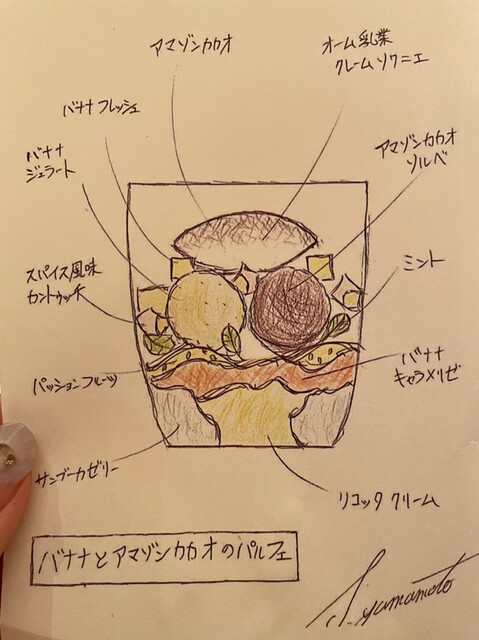 アマゾンカカオ
オーム乳業
クレームソワニエ
バナナフレッシュ
バナナ
ジェラート
アマゾンカカオ
ソルベ
スパイス風味
カントゥッチ
ミント
パッションフルーツ
バナナ
キャラメリゼ
サンブーカゼリー
リコッタクリーム
バナナとアマゾンカカオのパルフェ
S.yamamoto